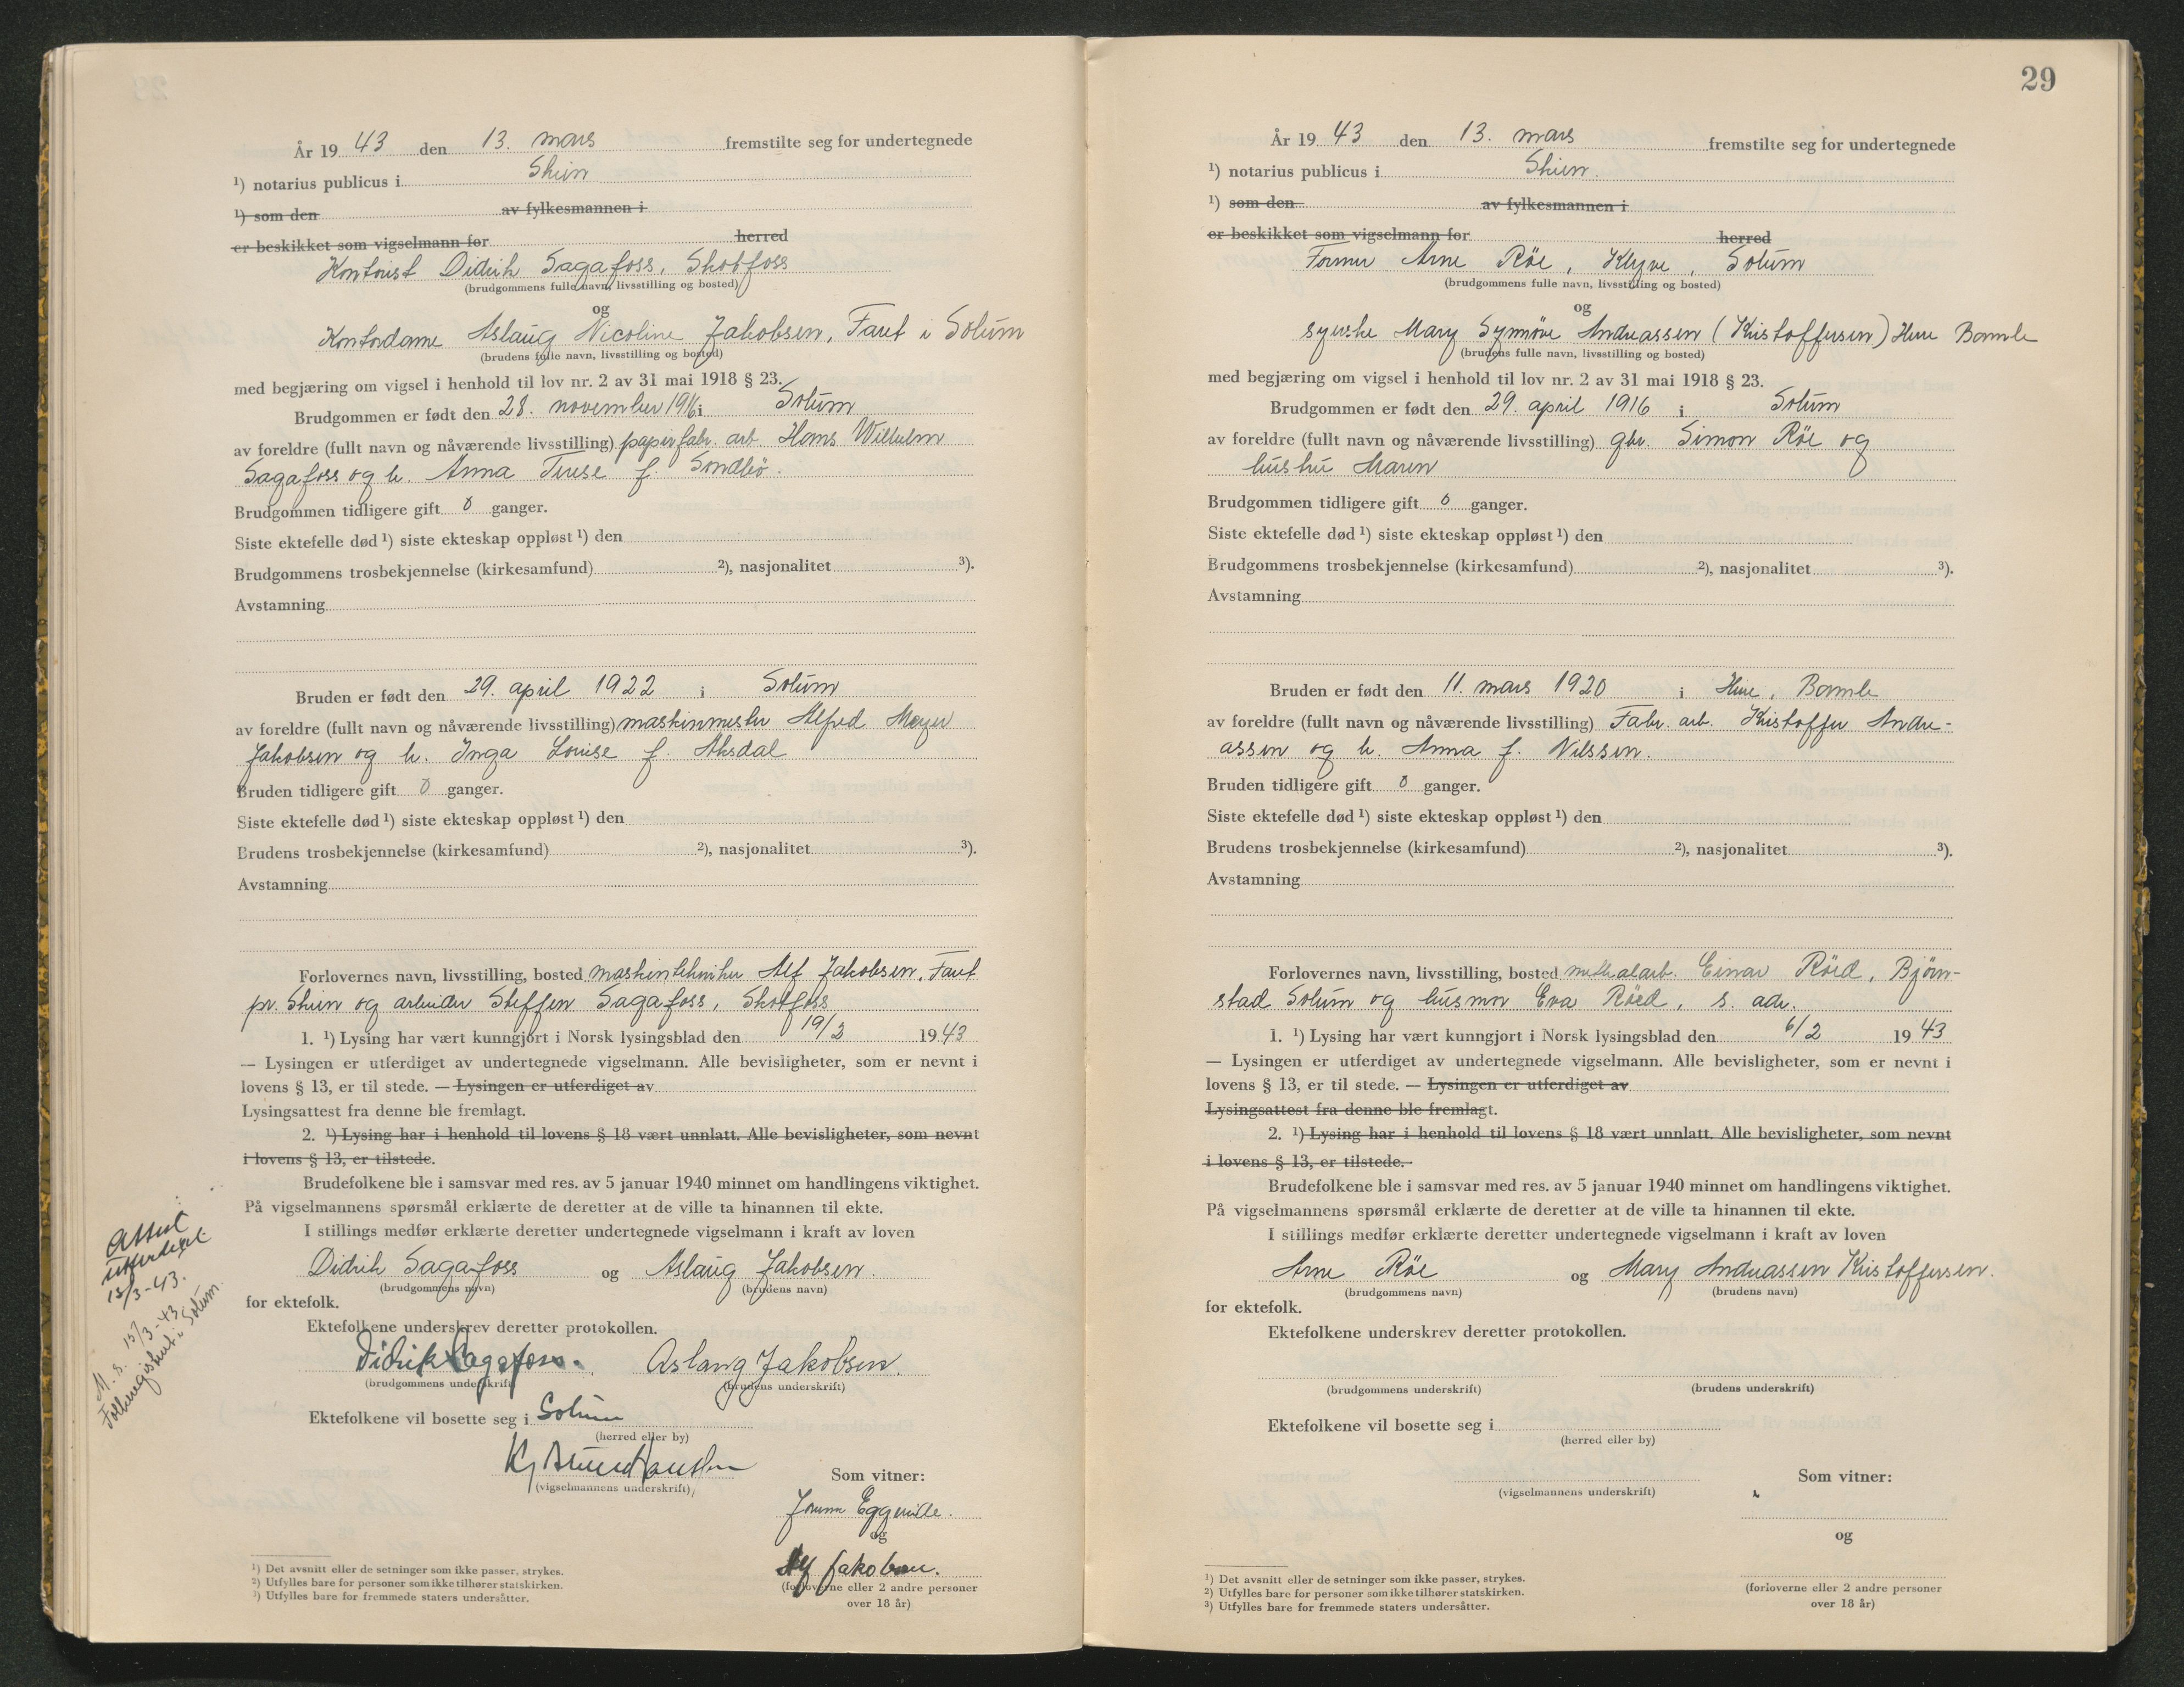 År 19 43 den 13. mars fremstilte seg for undertegnede
¹) notarius publicus i Skien
¹) som den av fylkesmannen i
er beskikket som vigselmann for herred
Kontorist Didrik Sagafoss, Skotfoss
(brudgommens fulle navn, livsstilling og bosted)
og
Kontordame Aslaug Nicoline Jakobsen, Faret i Solum
(brudens fulle navn, livsstilling og bosted)
med begjæring om vigsel i henhold til lov nr. 2 av 31 mai 1918 § 23.
Brudgommen er født den 28. november 1916 i Solum
av foreldre (fullt navn og nåværende livsstilling) papirfabr. arb. Hans Wilhelm
Sagafoss og h. Anna Terese f. Sondbö.
Brudgommen tidligere gift 0 ganger.
Siste ektefelle død ¹) siste ekteskap oppløst ¹) den
Brudgommens trosbekjennelse (kirkesamfund) ²), nasjonalitet ³).
Avstamning
Bruden er født den 29. april 1922 i Solum
av foreldre (fullt navn og nåværende livsstilling) maskinmester Alfred Meyer
Jakobsen og h. Inga Louise f. Aksdal
Bruden tidligere gift 0 ganger.
Siste ektefelle død ¹) siste ekteskap oppløst ¹) den
Brudens trosbekjennelse (kirkesamfund) ²), nasjonalitet ³).
Avstamning
Forlovernes navn, livsstilling, bosted maskintekniker Alf Jakobsen, Faret
pr. Skien og arbeider Steffen Sagafoss, Skotfoss
1. ¹) Lysing har vært kunngjort i Norsk lysingsblad den 19/2 1943
— Lysingen er utferdiget av undertegnede vigselmann. Alle bevisligheter, som er nevnt i
lovens § 13, er til stede. — Lysingen er utferdiget av
Lysingsattest fra denne ble fremlagt.
2. ¹) Lysing har i henhold til lovens § 18 vært unnlatt. Alle bevisligheter, som nevnt
i lovens § 13, er tilstede.
Brudefolkene ble i samsvar med res. av 5 januar 1940 minnet om handlingens viktighet.
På vigselmannens spørsmål erklærte de deretter at de ville ta hinannen til ekte.
I stillings medfør erklærte deretter undertegnede vigselmann i kraft av loven
Didrik Sagafoss og Aslaug Jakobsen.
(brudgommens navn) (brudens navn)
for ektefolk.
Ektefolkene underskrev deretter protokollen.
Didrik Sagafoss. Aslaug Jakobsen.
(brudgommens underskrift) (brudens underskrift)
Ektefolkene vil bosette seg i Solum
(herred eller by)
(vigselmannens underskrift)
Som vitner:
og
Alf Jakobsen.
(forloverne eller 2 andre personer
over 18 år)
Attest
utferdiget
13/3-43.
M. s. 13/3-43
Folkeregisteret i Solum
¹) Det avsnitt eller de setninger som ikke passer, strykes.
²) Utfylles bare for personer som ikke tilhører statskirken.
³) Utfylles bare for fremmede staters undersåtter.
29
År 19 43 den 13. mars fremstilte seg for undertegnede
¹) notarius publicus i Skien.
¹) som den av fylkesmannen i
er beskikket som vigselmann for herred
Former Arne Röe, Klyve, Solum
(brudgommens fulle navn, livsstilling og bosted)
og
syerske Mary Synnöve Andreassen (Kristoffersen) Herre Bamle
(brudens fulle navn, livsstilling og bosted)
med begjæring om vigsel i henhold til lov nr. 2 av 31 mai 1918 § 23.
Brudgommen er født den 29. april 1916 i Solum
av foreldre (fullt navn og nåværende livsstilling) gbr. Simon Röe og
hustru Maren
Brudgommen tidligere gift 0 ganger.
Siste ektefelle død ¹) siste ekteskap oppløst ¹) den
Brudgommens trosbekjennelse (kirkesamfund) ²), nasjonalitet ³).
Avstamning
Bruden er født den 11. mars 1920 i Herre, Bamle
av foreldre (fullt navn og nåværende livsstilling) Fabr. arb. Kristoffer Andre-
assen og h. Anna f. Nilssen.
Bruden tidligere gift 0 ganger.
Siste ektefelle død ¹) siste ekteskap oppløst ¹) den
Brudens trosbekjennelse (kirkesamfund) ²), nasjonalitet ³).
Avstamning
Forlovernes navn, livsstilling, bosted methalarb. Einar Röed, Bjørn-
stad Solum og husmor Eva Röed, s. adr.
1. ¹) Lysing har vært kunngjort i Norsk lysingsblad den 6/2 19 43
— Lysingen er utferdiget av undertegnede vigselmann. Alle bevisligheter, som er nevnt i
lovens § 13, er til stede. — Lysingen er utferdiget av
Lysingsattest fra denne ble fremlagt.
2. ¹) Lysing har i henhold til lovens § 18 vært unnlatt. Alle bevisligheter, som nevnt
i lovens § 13, er tilstede.
Brudefolkene ble i samsvar med res. av 5 januar 1940 minnet om handlingens viktighet.
På vigselmannens spørsmål erklærte de deretter at de ville ta hinannen til ekte.
I stillings medfør erklærte deretter undertegnede vigselmann i kraft av loven
Arne Röe og Mary Andreassen Kristoffersen.
(brudgommens navn) (brudens navn)
for ektefolk.
Ektefolkene underskrev deretter protokollen.
(brudgommens underskrift) (brudens underskrift)
Ektefolkene vil bosette seg i
(herred eller by)
Som vitner:
(vigselmannens underskrift)
og
(forloverne eller 2 andre personer
over 18 år)
¹) Det avsnitt eller de setninger som ikke passer, strykes.
²) Utfylles bare for personer som ikke tilhører statskirken.
³) Utfylles bare for fremmede staters undersåtter.